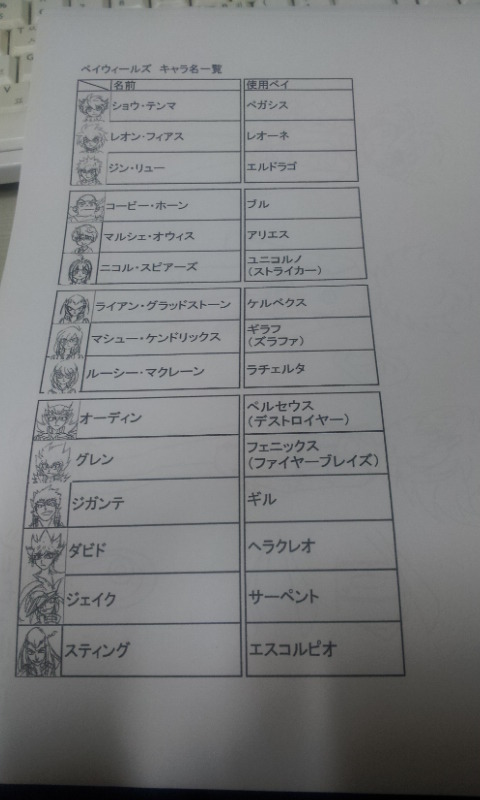 ベイウィールズ キャラ名一覧
名前 使用ベイ
ショウ・テンマ ペガシス
レオン・フィアス レオーネ
ジン・リュー エルドラゴ
コービー・ホーン ブル
マルシェ・オウィス アリエス
ニコル・スピアーズ ユニコルノ
(ストライカー)
ライアン・グラッドストーン ケルベクス
マシュー・ケンドリックス ギラフ
(ズラファ)
ルーシー・マクレーン ラチェルタ
オーディン ペルセウス
(デストロイヤー)
グレン フェニックス
(ファイヤーブレイズ)
ジガンテ ギル
ダビド ヘラクレオ
ジェイク サーペント
スティング エスコルピオ